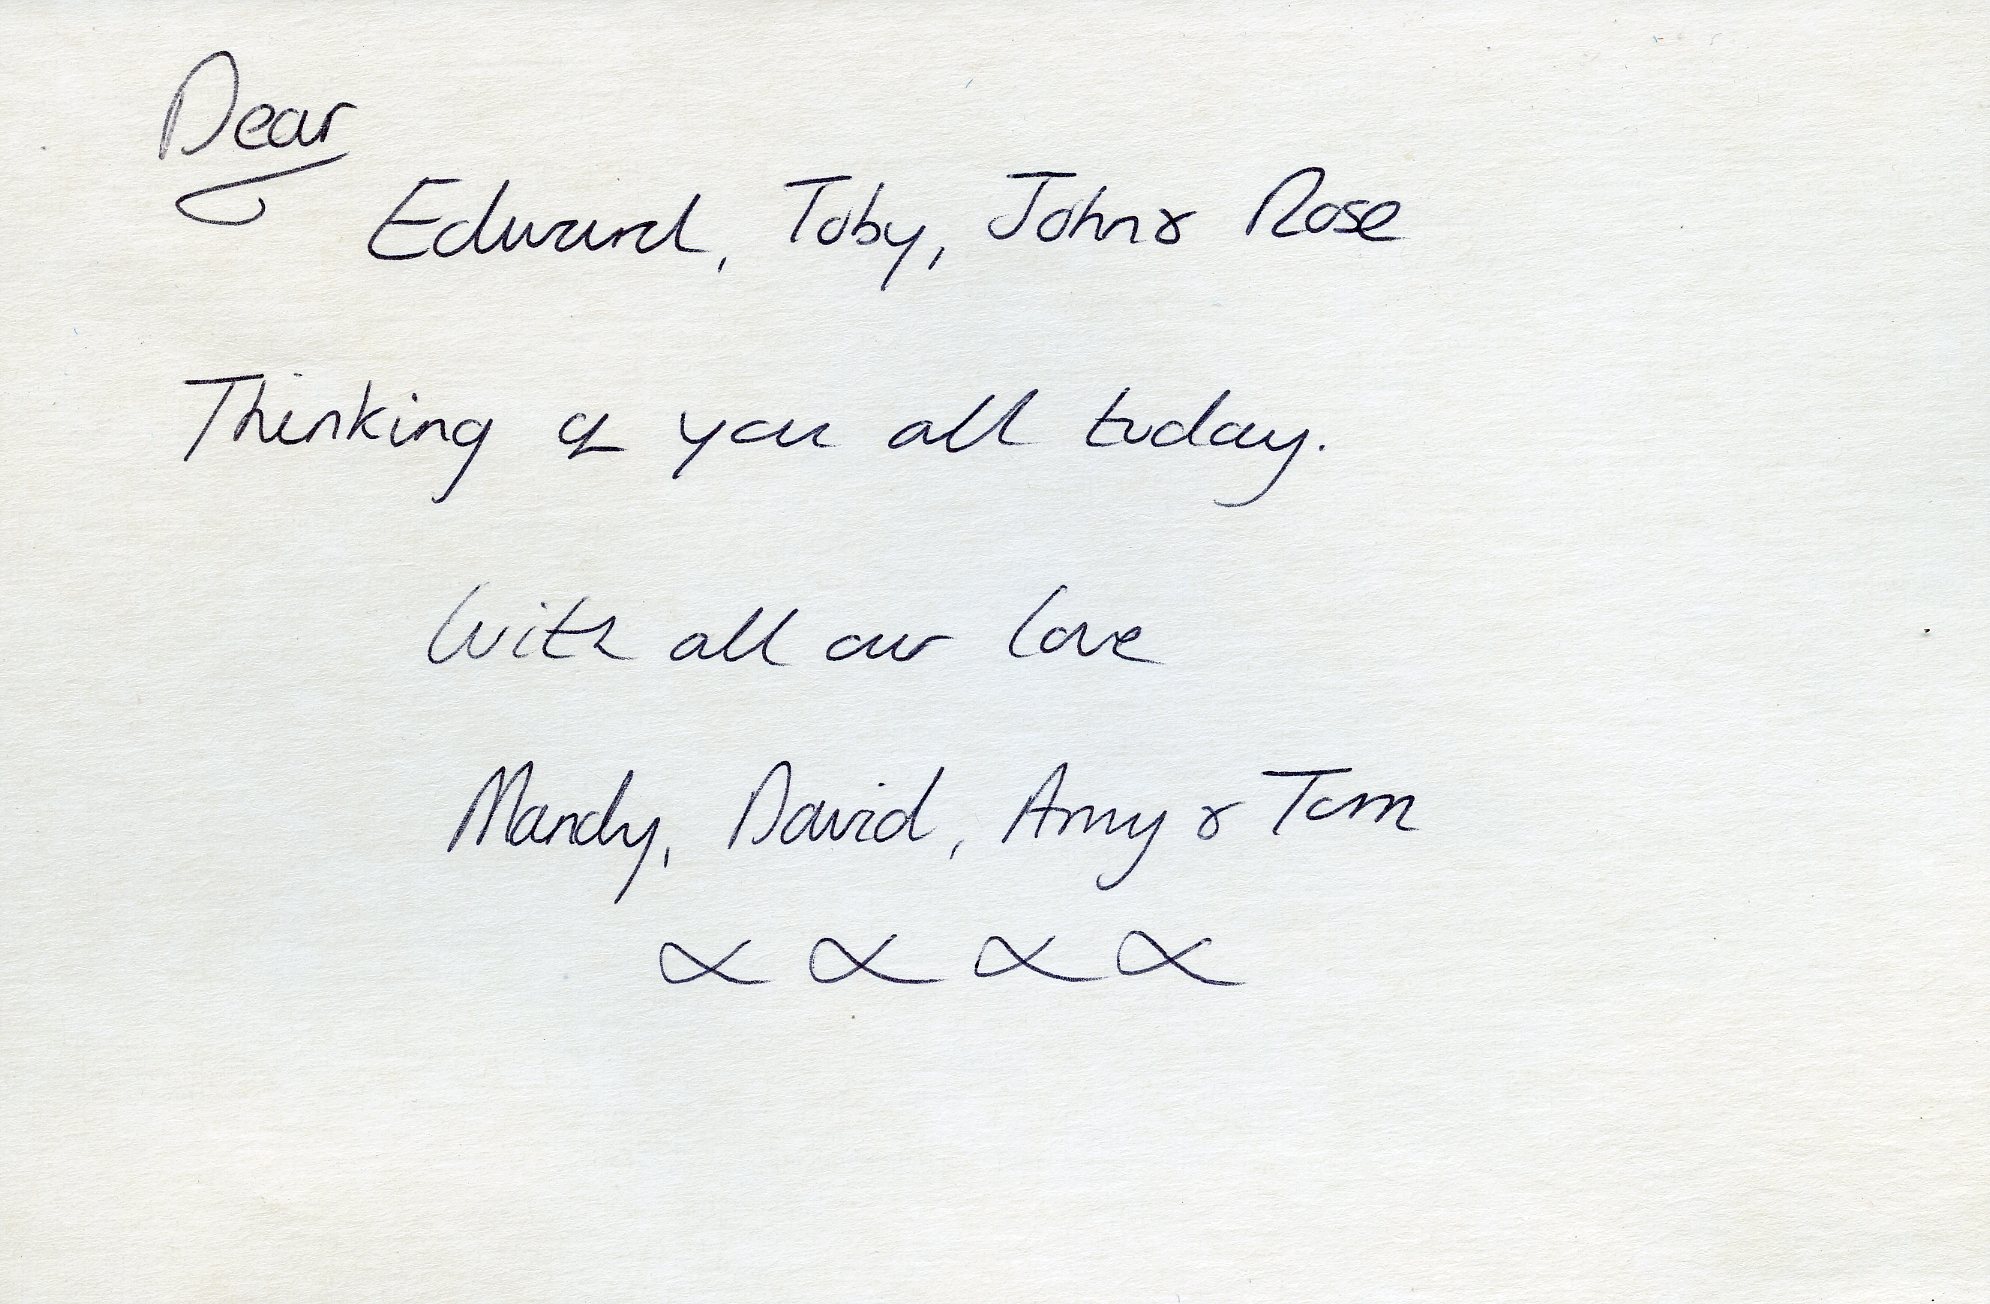 Dear
Edward, Toby, John & Rose
Thinking of you all today.
With all our love
Mandy, David, Amy & Tom
x x x x